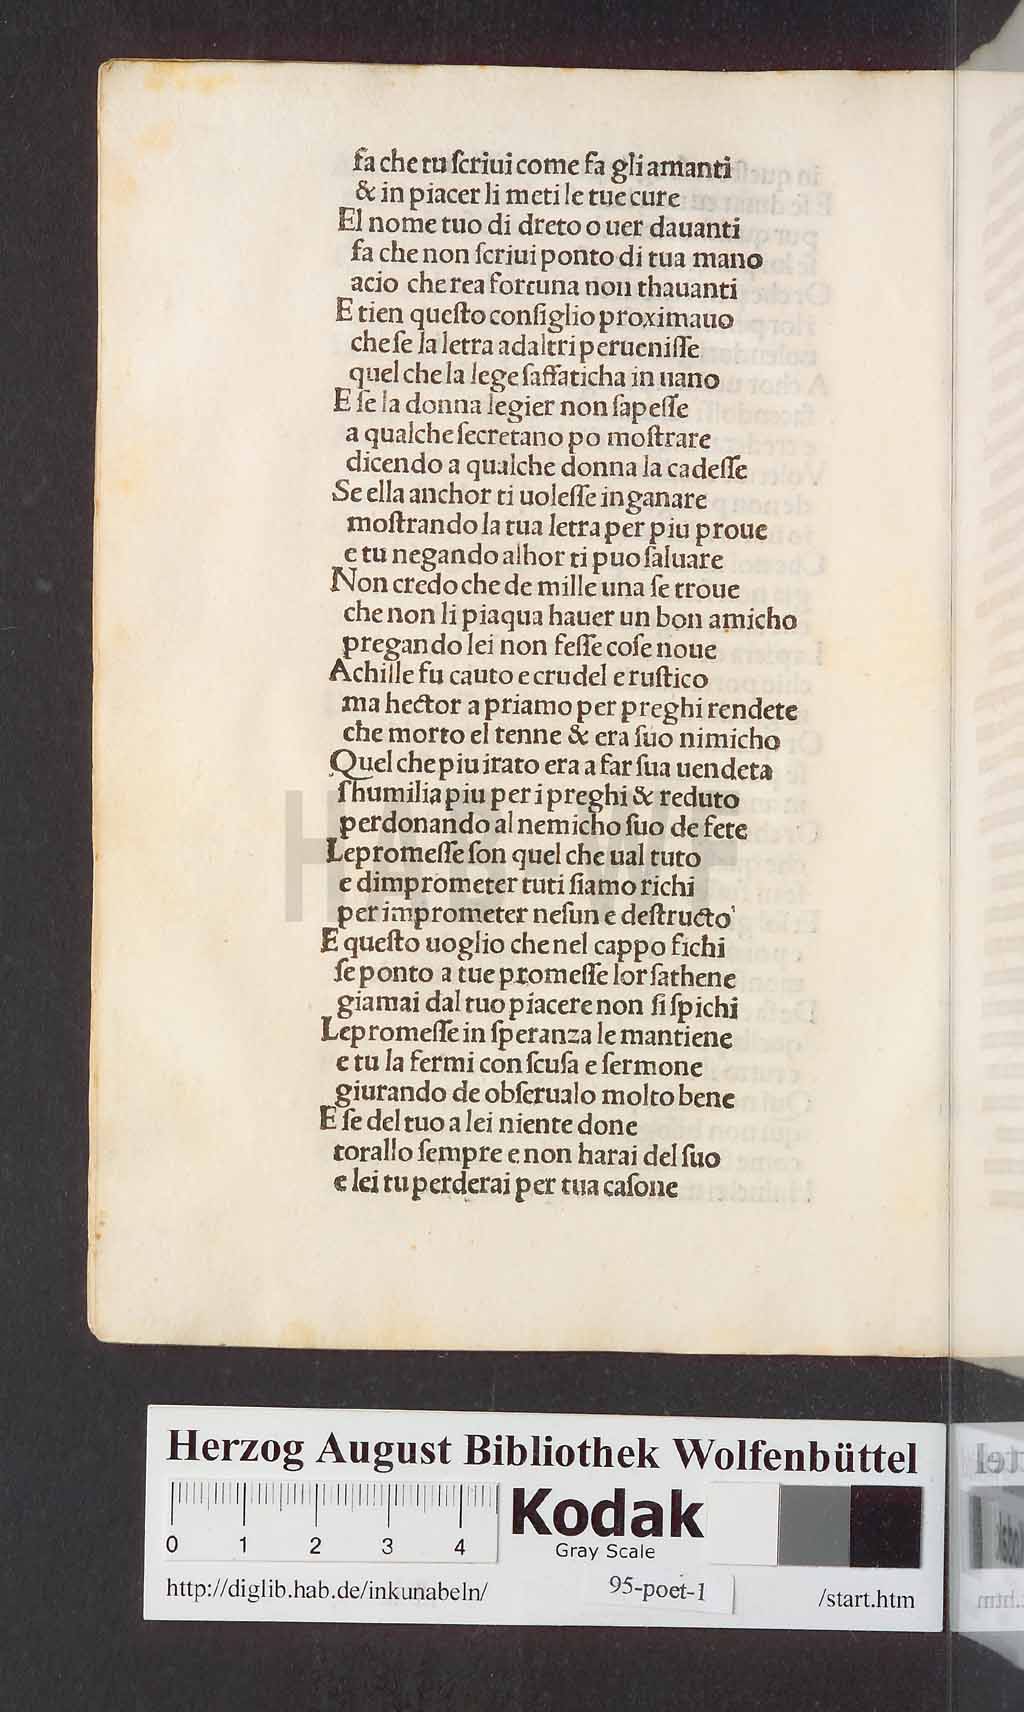 fa che tu ſcriui come fa gli amanti
& in piacer li meti le tue cure
El nome tuo di dreto o uer dauanti
fa che non ſcriui ponto di tua mano
acio che rea fortuna non thauanti
E tien queſto conſiglio proximauo
che ſe la letra ad altri perueniſſe
quel che la lege ſaffaticha in uano
E ſe la donna legier non ſapeſſe
a qualche ſecretano po moſtrare
dicendo a qualche donna la cadeſſe
Se ella anchor ti uoleſſe inganare
moſtrando la tua letra per piu proue
e tu negando alhor ti puo ſaluare
Non credo che de mille una ſe troue
che non li piaqua hauer un bon amicho
pregando lei non feſſe coſe noue
Achille fu cauto e crudel e ruſtico
ma hector a priamo per preghi rendete
che morto el tenne & era ſuo nimicho
Quel che piu irato era a far ſua uendeta
ſhumilia piu per i preghi & reduto
perdonando al nemicho ſuo de fete
Le promeſſe ſon quel che ual tuto
e dimprometer tuti ſiamo richi
per imprometer neſun e deſtructo
E queſto uoglio che nel cappo fichi
ſe ponto a tue promeſſe lor ſathene
giamai dal tuo piacere non ſi ſpichi
Le promeſſe in ſperanza le mantiene
e tu la fermi con ſcuſa e ſermone
giurando de obſerualo molto bene
E ſe del tuo a lei niente done
torallo ſempre e non harai del ſuo
e lei tu perderai per tua caſone
HAB WF
Herzog August Bibliothek Wolfenbüttel
0 1 2 3 4
Kodak
Gray Scale
http://diglib.hab.de/inkunabeln/ 95-poet-1 /start.htm